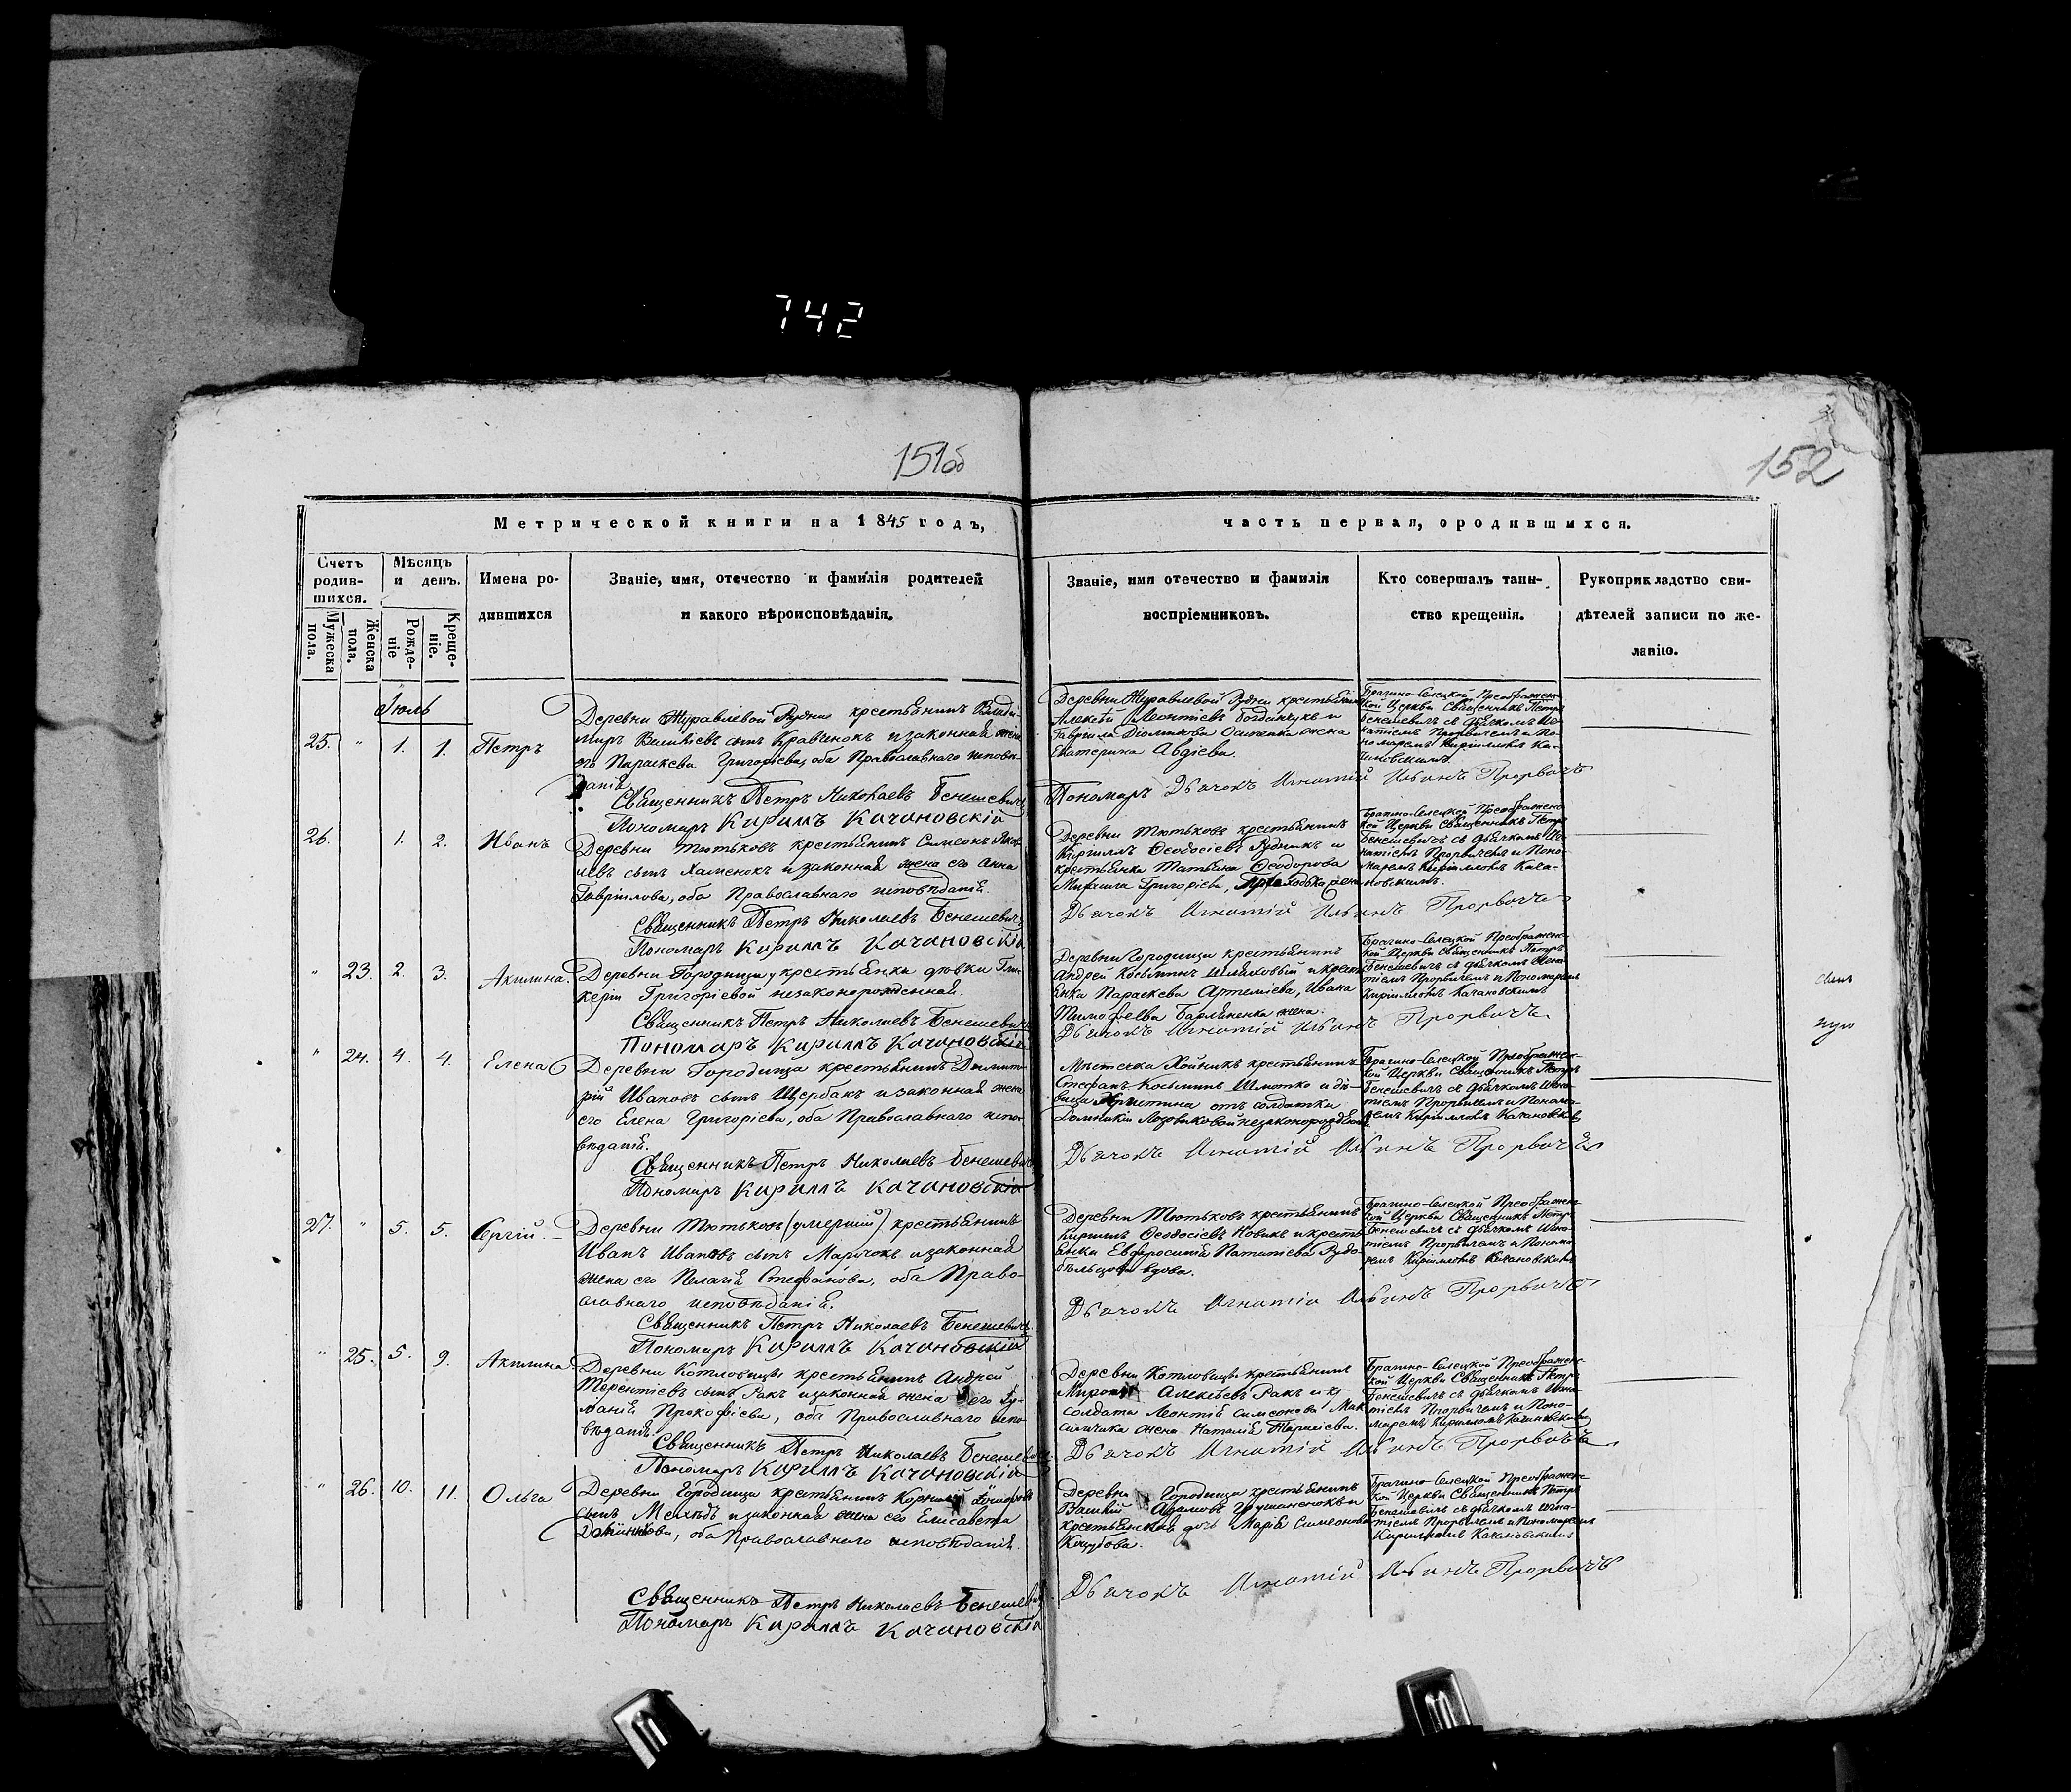 742
151об
152
Метрической книги на 1845 годъ,
часть первая, ородившихся.
Счетъ родив-шихся.
Мужеска пола.
Женска пола.
Мѣсяцъ и день.
Рожде-ніе
Креще-ніе.
Имена ро-
дившихся
Званіе, имя, отечество и фамилія родителей
и какого вѣроисповѣданія.
Званіе, имя отечество и фамилія
воспріемниковъ.
Кто совершалъ таин-
ство крещенія.
Рукоприкладство сви-
дѣтелей записи по же-
ланію.
Іюль
25. " 1. 1. Петръ
Деревни Журавлевой Рудни крестьянинъ Влади-
миръ сынъ Кравченокъ и законная жена
его Параскева Григоріева, оба Православнаго исповѣ-
данія.
Священникъ Петръ Николаевъ Бенешевичъ
Пономарь Кириллъ Качановскій
Деревни Журавлевой Рудни крестьянинъ
Алексѣй Леонтіевъ и
Гавріила жена
Екатерина Авдіева.
Брагино-Селецкой Преображен-
ской Церкви Священникъ Петръ
Бенешевичъ съ дьячкомъ Иг-
натіемъ Прорвичемъ и По-
номаремъ Кирилломъ Ка-
чановскимъ.
Пономарь Дьячокъ Игнатій Ильинъ Прорвичъ
26. 1. 2. Иванъ
Деревни Тютьковъ крестьянинъ Симеонъ
сынъ Хаменокъ и законная жена его Анна
Гавріилова, оба Православнаго исповѣданія.
Священникъ Петръ Николаевъ Бенешевичъ
Пономарь Кириллъ Качановскій
Деревни Тютьковъ крестьянинъ
Кириллъ Ѳеодосіевъ и
крестьянка Татьяна Ѳеодорова
Михаила Григоріева, жена
Брагино-Селецкой Преображен-
кой Церкви Священникъ Петръ
Бенешевичъ съ дьячкомъ Иг-
натіемъ Прорвичемъ и Поно-
маремъ Кирилломъ Кача-
новскимъ.
Дьячокъ Игнатій Ильинъ Прорвичъ
" 23. 2. 3. Акилина.
Деревни Городища у крестьянки дѣвки Гли-
керіи Григоріевой незаконорожденная.
Священникъ Петръ Николаевъ Бенешевичъ
Пономарь Кириллъ Качановскій
Деревни Городища крестьянинъ
Андрей Косьминъ и кресть-
янка Параскева Артеміева, Ивана
Тимофеева жена.
Брагино-Селецкой Преображен-
кой Церкви Священникъ Петръ
Бенешевичъ съ дьячкомъ Игна-
тіемъ Прорвичемъ и Пономаремъ
Кирилломъ Качановскимъ
Дьячокъ Игнатій Ильинъ Прорвичъ.
" 24. 4. 4. Елена
Деревни Городища крестьянинъ Димит-
рій Ивановъ сынъ Щербакъ и законная жена
его Елена Григоріева, оба Православнаго испо-
вѣданія.
Священникъ Петръ Николаевъ Бенешевичъ
Пономарь Кириллъ Качановскій
Мѣстечка Хойникъ крестьянинъ
Стефанъ Косьминъ Шмотко и дѣ-
вица Христина отъ солдатки
Домникіи незаконорожденная
Брагино-Селецкой Преображен-
кой Церкви Священникъ Петръ
Бенешевичъ съ дьячкомъ Игна-
тіемъ Прорвичемъ и Понома-
ремъ Кирилломъ Качановскимъ
Дьячокъ Игнатій Ильинъ Прорвичъ
27. " 5. 5. Сергій.
Деревни Тютьковъ (умершій) крестьянинъ
Иванъ Ивановъ сынъ Марчокъ и законная
жена его Пелагія Стефанова, оба Право-
славнаго исповѣданія.
Священникъ Петръ Николаевъ Бенешевичъ
Пономарь Кириллъ Качановскій
Деревни Тютьковъ крестьянинъ
Кириллъ Ѳеодосіевъ Новикъ и кресть-
янка Евфросинія Рудо-
бѣльцова вдова.
Брагино-Селецкой Преображен-
кой Церкви Священникъ Петръ
Бенешевичъ съ дьячкомъ Игна-
тіемъ Прорвичемъ и Понома-
ремъ Кирилломъ Качановскимъ
Дьячокъ Игнатій Ильинъ Прорвичъ
" 25. 5. 9. Акилина
Деревни Котловицы крестьянинъ Андрей
Терентіевъ сынъ Ракъ и законная жена его
Прокофіева, оба Православнаго испо-
вѣданія.
Священникъ Петръ Николаевъ Бенешевичъ
Пономарь Кириллъ Качановскій
Деревни Котловицы крестьянинъ
Миронъ Алексѣевъ Ракъ и
солдата Леонтія Симеонова Мак-
симчика жена Наталія Тарасіева.
Брагино-Селецкой Преображен-
кой Церкви Священникъ Петръ
Бенешевичъ съ дьячкомъ Игна-
тіемъ Прорвичемъ и Поно-
маремъ Кирилломъ Качановскимъ
Дьячокъ Игнатій Ильинъ Прорвичъ
" 26. 10. 11. Ольга
Деревни Городища крестьянинъ Корнилій
сынъ и законная жена его Елисавета
оба Православнаго исповѣданія.
Священникъ Петръ Николаевъ Бенешевичъ
Пономарь Кириллъ Качановскій
Деревни Городища крестьянинъ
Василій Адамовъ и
крестьянская дочь Марія Симеонова
Кацубова.
Брагино-Селецкой Преображен-
кой Церкви Священникъ Петръ
Бенешевичъ съ дьячкомъ Игна-
тіемъ Прорвичемъ и Пономаремъ
Кирилломъ Качановскимъ
Дьячокъ Игнатій Ильинъ Прорвичъ